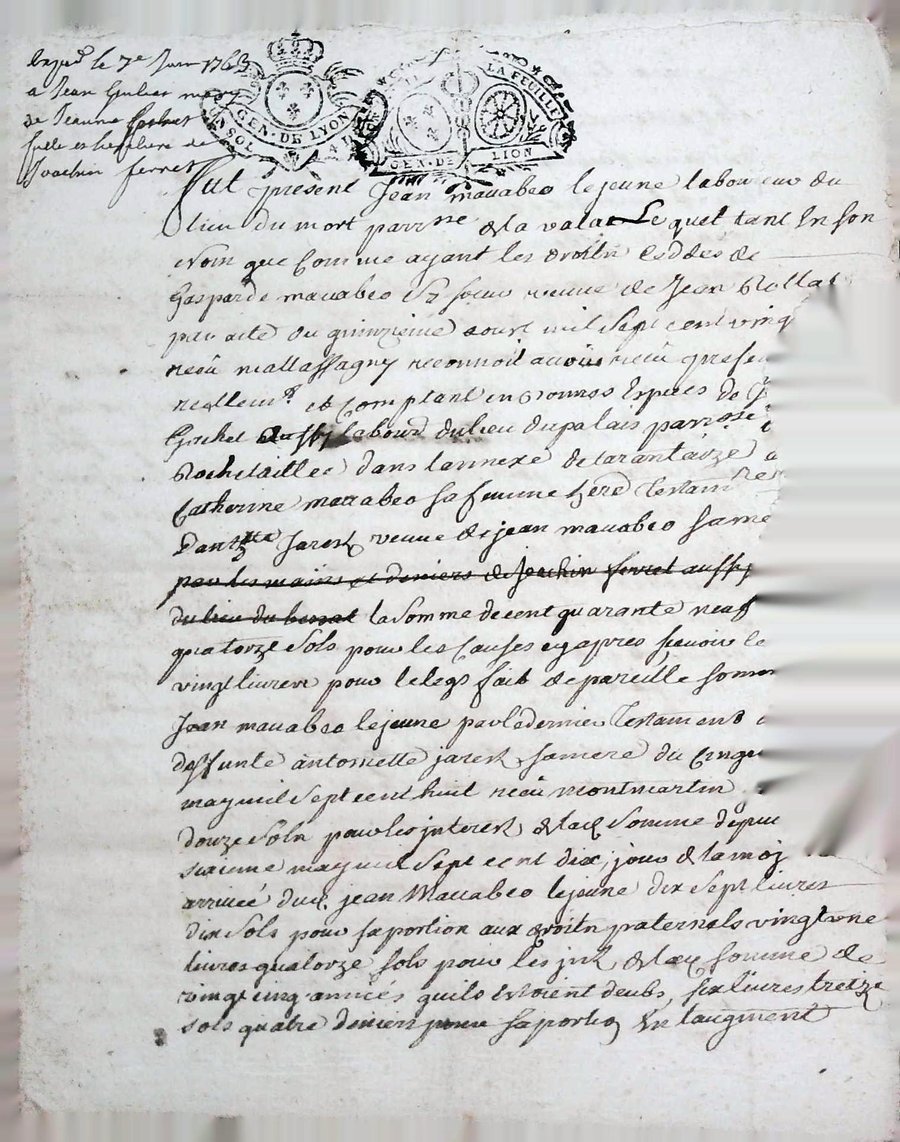 le 7e Juin 1763
a Jean
de Jeanne
fille et heritiere de
Joachin ferret
GEN. DE LYON
SOL
LA FEUILLE
GEN. DE LION
fut present Jean mauabeo le jeune laboureur du
lieu du mort parrsse de la vala Le quel tant En son
Nom que Comme ayant les droits de
Gasparde mauabeo sa soeur veuve de Jean
par acte du quinzieme aoust mil sept cent ving
receu mallassagny reconnoit avoir receu presen
reellemt et Comptant en bonnes Especes de
labour du lieu du palais parrsse
Rochetaillee dans lannexe de tarantaize
Catherine mauabeo sa femme
Jarest veuve de jean mauabeo
par les mains et deniers de Joachin ferret aussy
du lieu du bessat la somme de cent quarante neuf
quatorze sols pour les Causes cy apres scavoir
vingt livres pour le legs fait de pareille somm
Jean mauabeo le jeune par le dernier Testament
deffunte antoinette jarest sa mere du Cinqu
may mil sept cent huit receu montmartin
douze sols pour les interests de la somme depuis
may mil sept cent dix, jour de la
arrivée jean Mauabeo le jeune dix sept livres
dix sols pour sa portion aux droits paternels vingt une
livres quatorze sols pour les de la somme de
vingt cinq années quils Estoient deubs, six livres treize
sols quatre deniers pour sa portion En laugment